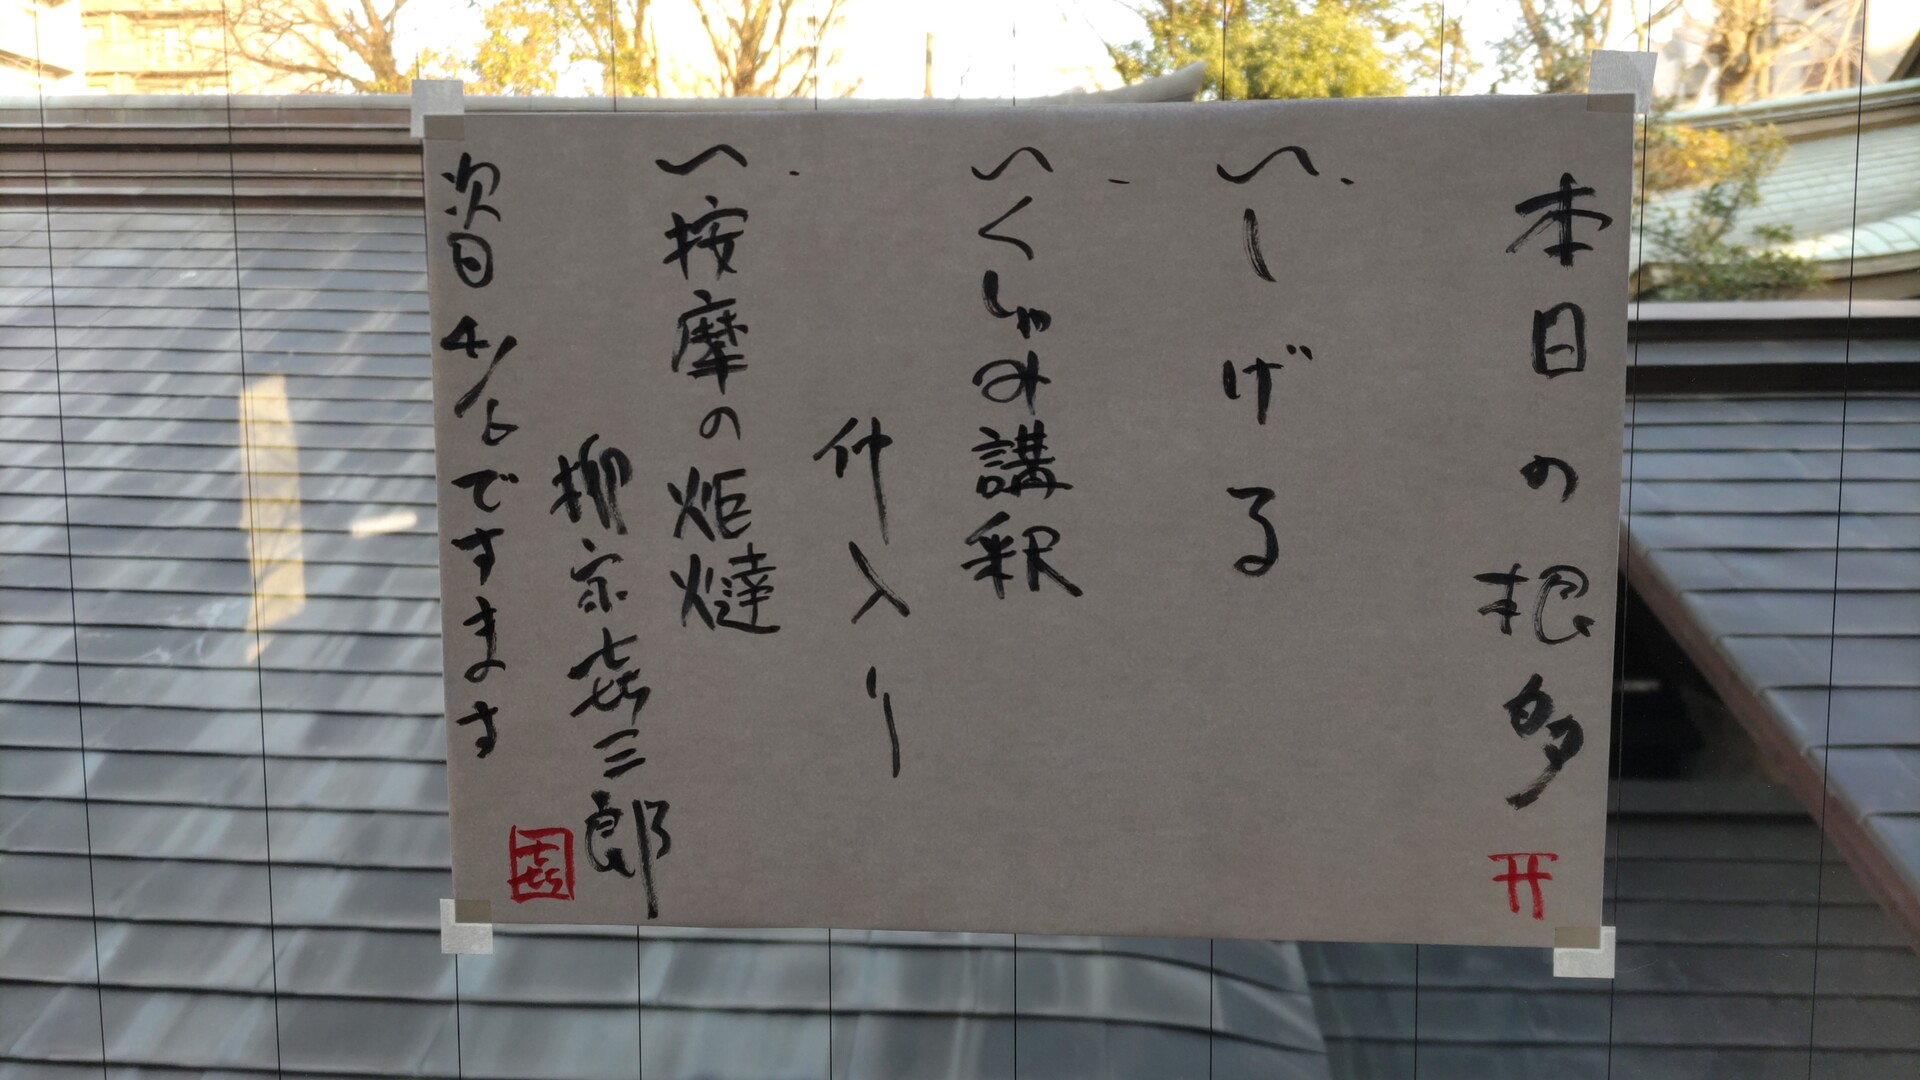 本日の根多
〽しげる
〽くしゃみ講釈
仲入り
〽按摩の炬燵
柳家㐂三郎
㐂
次回4/6ですます